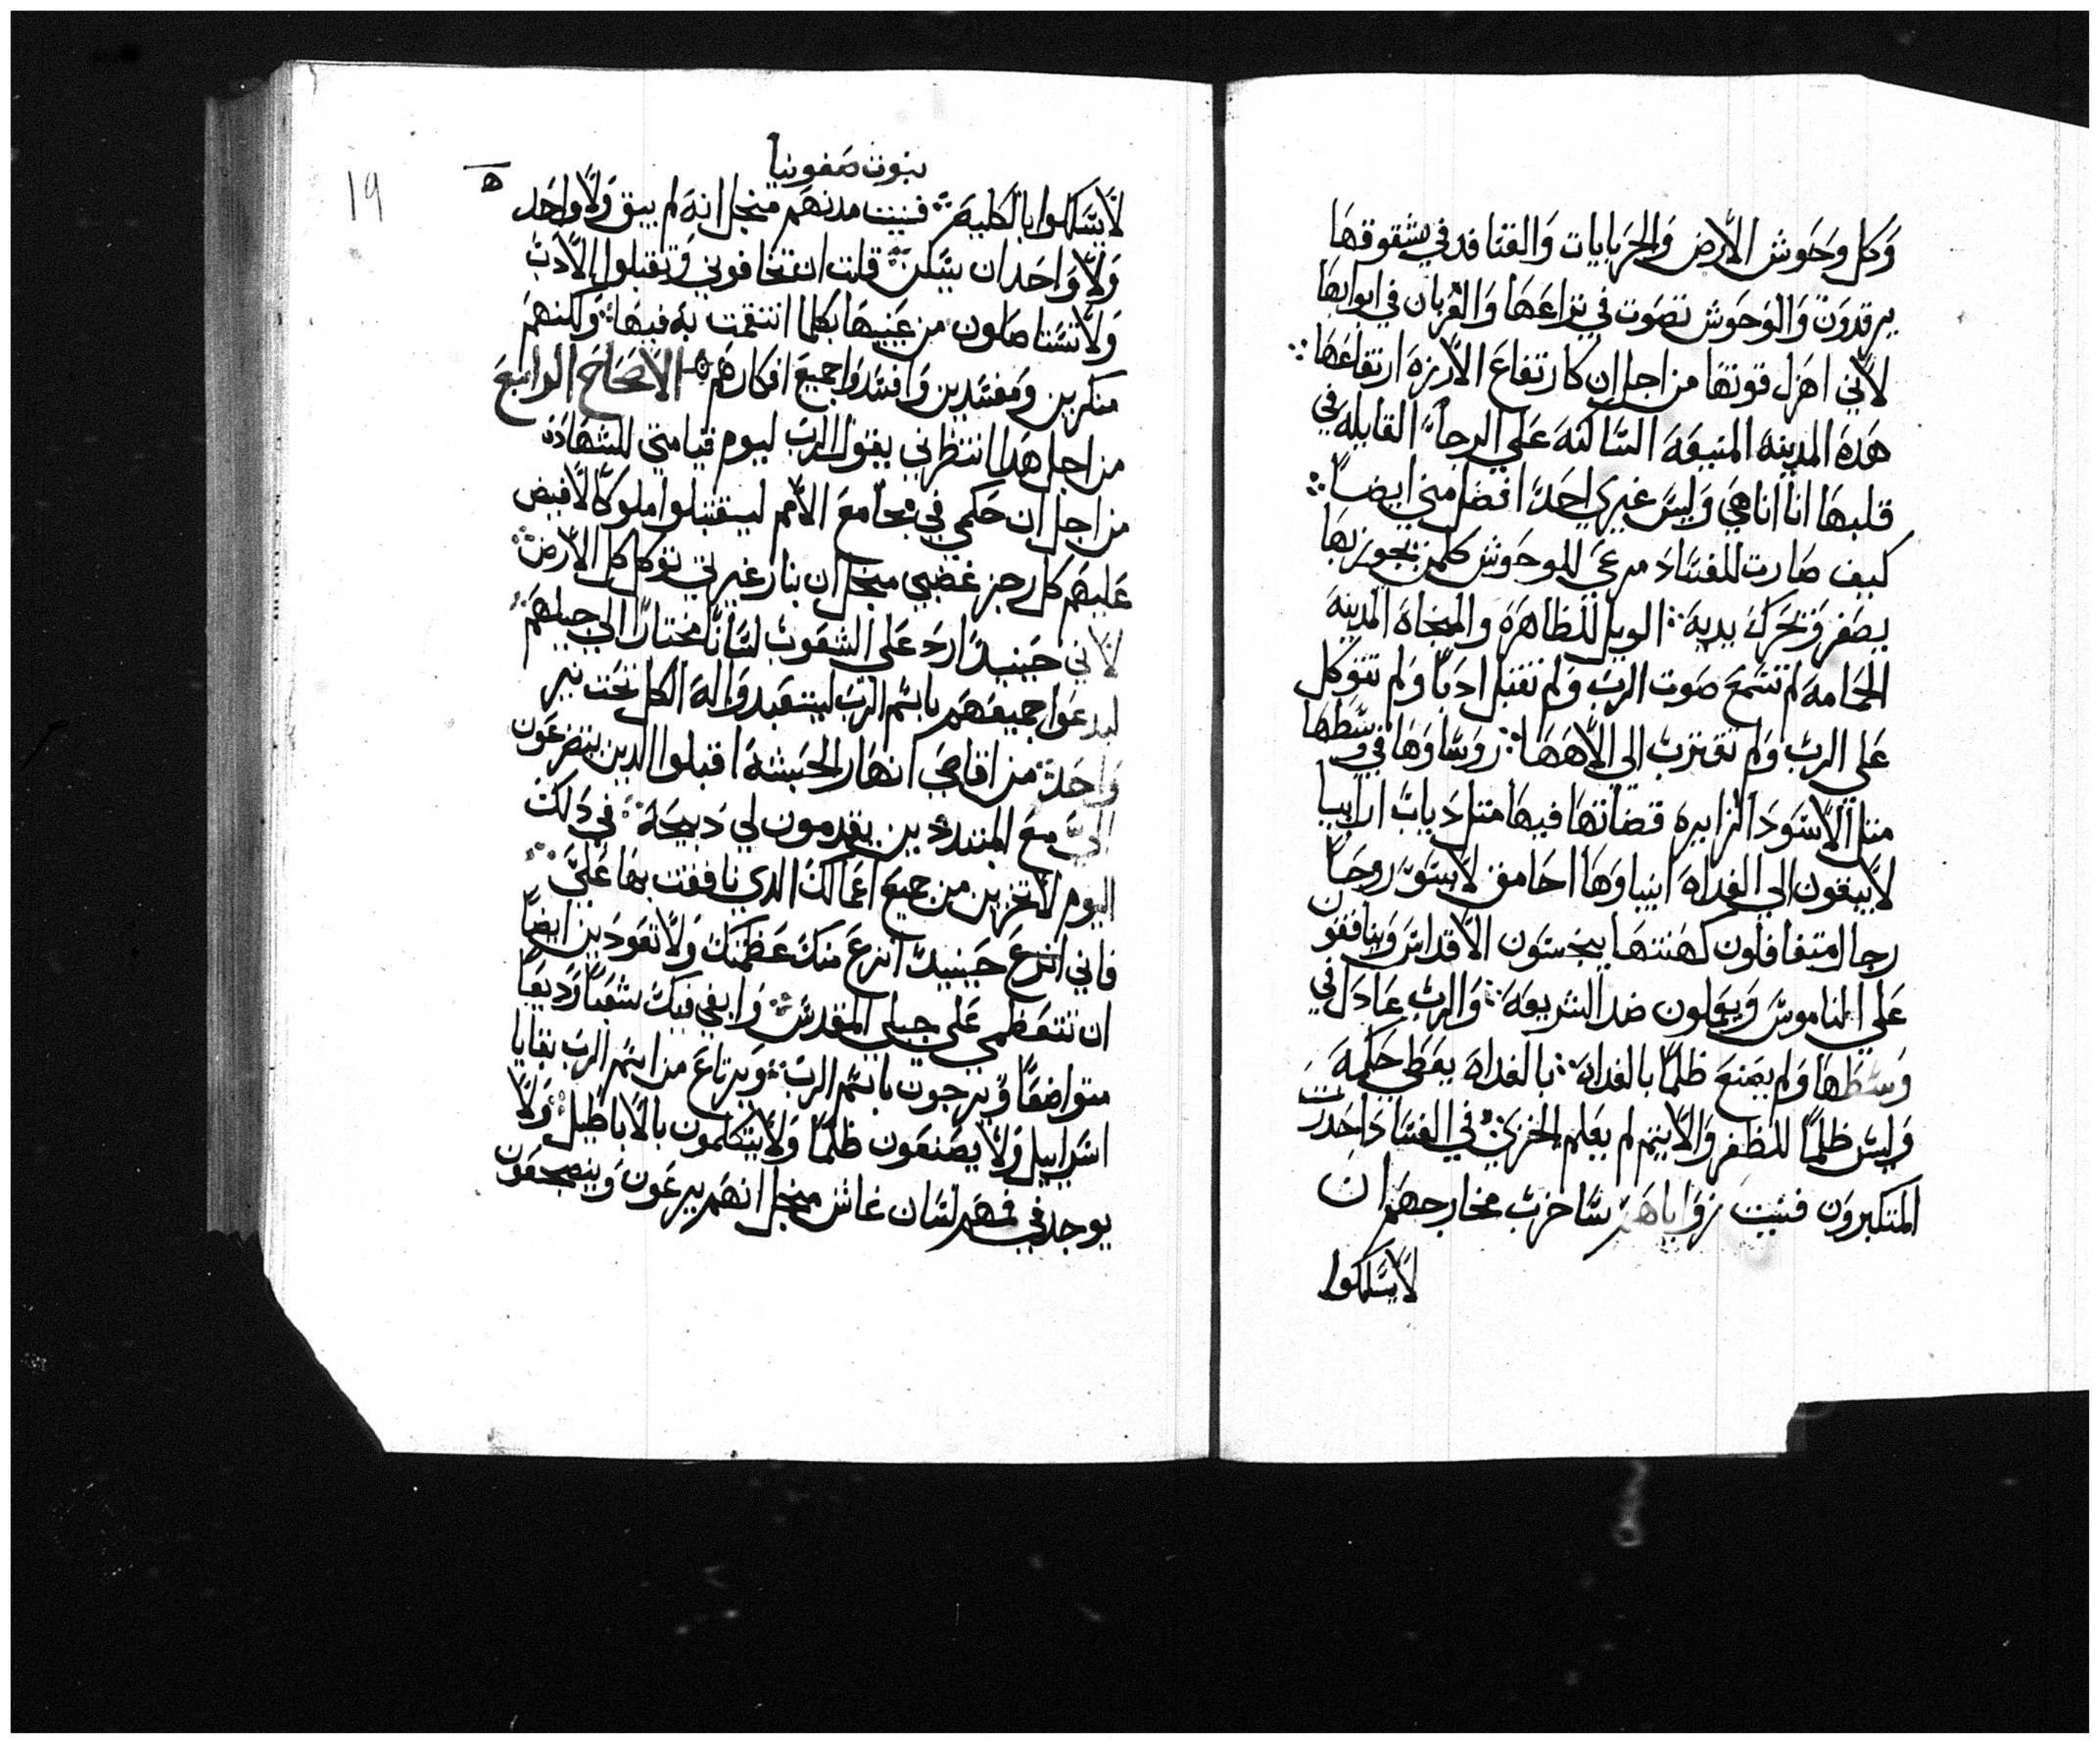 وَكل وحَوش الأرض وَالحَرَبايات وَالقنافد في شقوقهَا
يرقدوَن وَالوَحوَش تصَوت في نزاعَهَا وَالغربان في ابوابهَا
لأني اهزل قوتهَا من اجل ان كارتفاعَ الأرزهَ ارتقاعَهَا ⁘
هَدهَ المدينهَ المنيعَهَ السَّاكنهَ عَلي الرجاءَ القايلهَ في
قلبهَا انا انا هَي وَليسَّ غيري احَدَ افضل مني ايضاً ⁘
كيف صَارت للفسَّادَ مرعَي للوحَوش كلمن يجوز بهَا
يصَفر وَيحَرك يديهَ ⁘ الويل للظاهَرَهَ والمنجاهَ المدينهَ
الحَمامهَ لم تسَّمعَ صَوت الربَّ وَلم تقبل ادبَاً وَلم تتوكل
عَلي الربَّ وَلم تقتربَّ الي الأهَهَا ⁘ روسَّاوَهَا في وَسَّطهَا
متل الأسَّوَدَ الزايره قضاتهَا فيهَا متل ديابَّ ارابيا
لأيبقون الي الغداهَ انبياوَهَا احَامق لأبسَّوَن روحَاً
رجال متغافلون كهَنتهَا ينجسَّون الأقداسَّ وَينافقون
عَلي الناموسَّ وَيعَملون ضد الشريعَهَ ⁘ وَالربَّ عَادَل في
وَسَّطهَا وَلم يصَنعَ ظلماً بالغداهَ ⁘ بالغداهَ يعَطي حَكمهَ
وَليسَّ ظلماً للظفر وَالأيتم لم يعَلم الخزي في الفسَّادَ احَدرت
المتكبروَن فنيت زوَاياهَم سَّاخربَّ مخارجهَم ان
لأيسَّلكوا
نبوت صَفونيا
هـ
19
لأيسَّلكوا بالكليهَ ⁘ فنيت مدنهَم منجل انهَ لم يبق وَلأ واحَد
وَلأ وَاحَد ان يسَّكن ⁘ قلت ان تخافوني وَتقبلوا الأدبَّ
وَلأ تسَّتاصَلون من عَينيهَا بكلما انتقمت بهَ فيهَا ⁘ وَلكنهَم
منكرين وَمفسَّدين وَافسَّدوَا جميعَ افكارهَم الأصَحَاحَ الرابعَ
من اجل هَدا انتظرني يقول الربَّ ليوم قيامتي للشهَادهَ
من اجل ان حَكمي في مجامعَ الأمم ليستقبلوا ملوكاً لأفيض
عَليهَم كل رجز غضبي منجل ان بنار غيرتي توكل كل الأرض ⁘
لأني حَينيدَ اردَ عَلي الشعَوبَّ لسَّاناً مختاراً الي جيلهَم ⁘
ليدعَوا جميعَهَم باسَّم الربَّ ليتعَبدوَا لهَ الكل تحَت نير
وَاحَد ⁘ من اقاصَي انهَار الحَبشهَ اقبلوا الدين يتضرعَون
اليَّ معَ المتبددين يقدمون لي دبيحَهَ ⁘ في دَلك
اليوم لأ تخزين من جميعَ اعَمالك الدي نافقت بهَا عَليَّ ⁘
فاني انزعَ حَينيدَ انزعَ منك عَظمتك وَلأ تعَودين ايضاً
ان تتعَظمي عَلي جبلي المقدسَّ ⁘ وَابقي فيك شعَباً وَديعَاً
متواضعَاً وَيرجون باسَّم الربَّ ⁘ وَيرتاعَ من اسَّم الربَّ بقايا
اسَّراييل وَلأ يصَنعَون ظلماً وَلأ يتكلمون بالأباطيل ⁘ وَلأ
يوجد في فمهَم لسَّان غاش منجل انهَم يرعَون وَينضجعَون